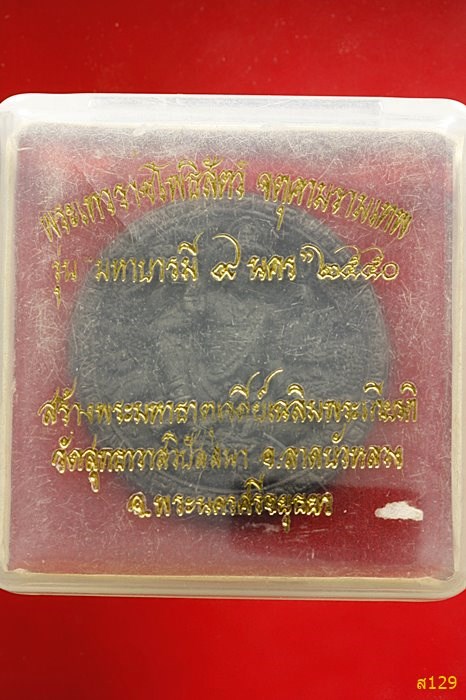 พระเทวราชโพธิสัตว์ จตุคามรามเทพ
รุ่น "มหาบารมี ๙ นคร" ๒๕๕๐
สร้างพระมหาธาตุเจดีย์เฉลิมพระเกียรติ
วัดสุทธาวาสวิปัสสนา อ.ลาดบัวหลวง
จ.พระนครศรีอยุธยา
ส129